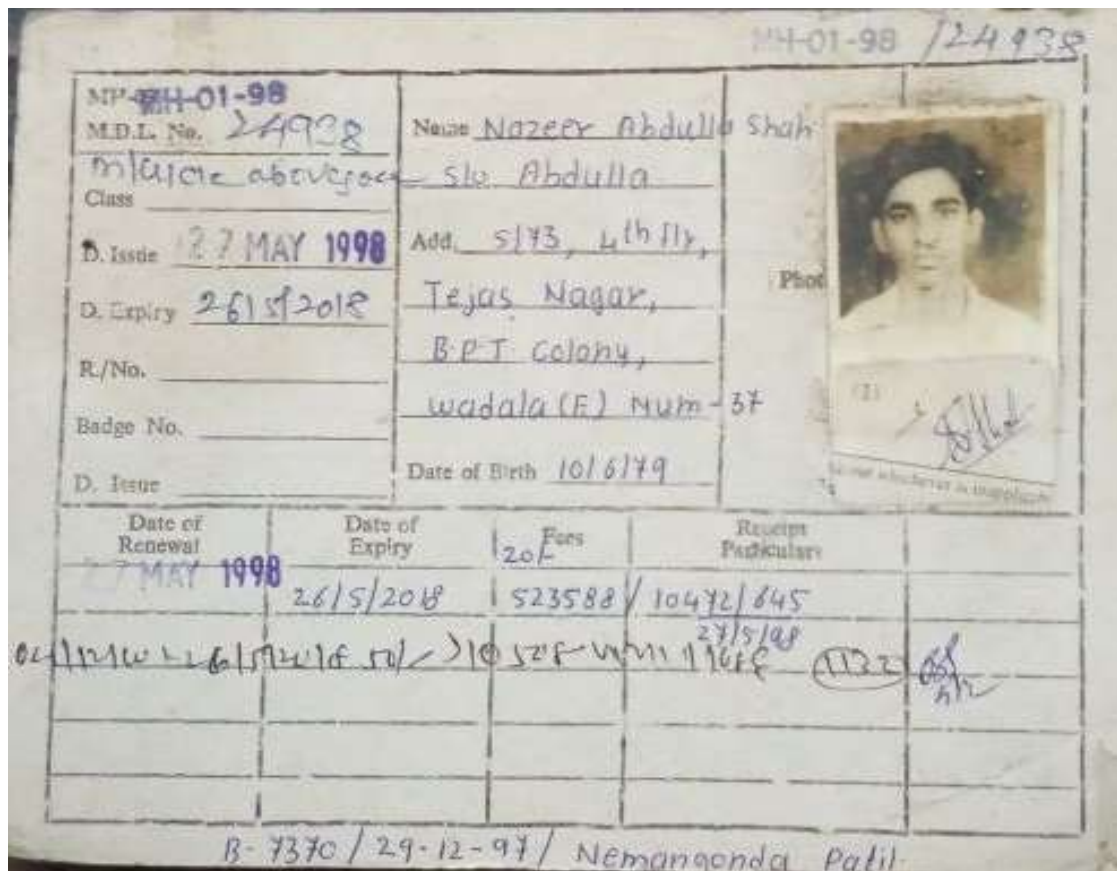 MH-01-98 /24938
MH-01-98
M.D.L. No. 24938
Class
D. Issue 27 MAY 1998
D. Expiry 26/5/2018
R./No.
Badge No.
D. Issue
Name Nazeer Abdulla Shah
S/o. Abdulla
Add. 5/73, 4th
Tejas Nagar,
B.P.T. Colony,
Wadala (E) Mum-37
Date of Birth 10/6/79
Photo
(2)
Date of Renewal
Date of Expiry
Fees
Receipt Particulars
27 MAY 1998
26/5/2018
120/-
523588/
10472/645
27/5/98
1122
B-7370/29-12-97/ Nemangonda Patil